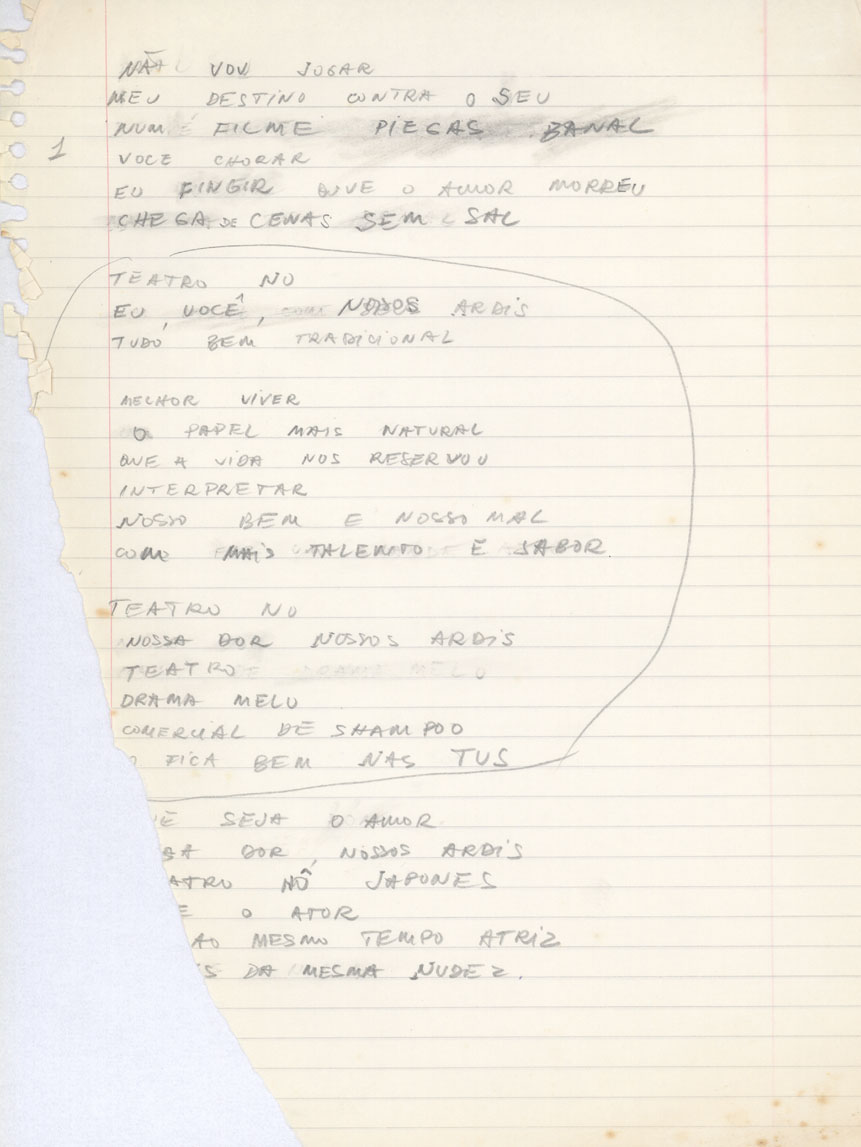 NÃO VOU JOGAR
MEU DESTINO CONTRA O SEU
NUM FILME PIEGAS BANAL
1
VOCE CHORAR
EU FINGIR QUE O AMOR MORREU
CHEGA DE CENAS SEM SAL
TEATRO NO
EU, VOCÊ, ARDIS
TUDO BEM TRADICIONAL
MELHOR VIVER
O PAPEL MAIS NATURAL
QUE A VIDA NOS RESERVOU
INTERPRETAR
NOSSO BEM E NOSSO MAL
COM MAIS TALENTO E SABOR
TEATRO NO
NOSSA DOR NOSSOS ARDIS
TEATRO
DRAMA MELO
COMERCIAL DE SHAMPOO
O FICA BEM NAS TVS
UE SEJA O AMOR
SA DOR, NOSSOS ARDIS
ATRO NÔ JAPONES
E O ATOR
AO MESMO TEMPO ATRIZ
IS DA MESMA NUDEZ.